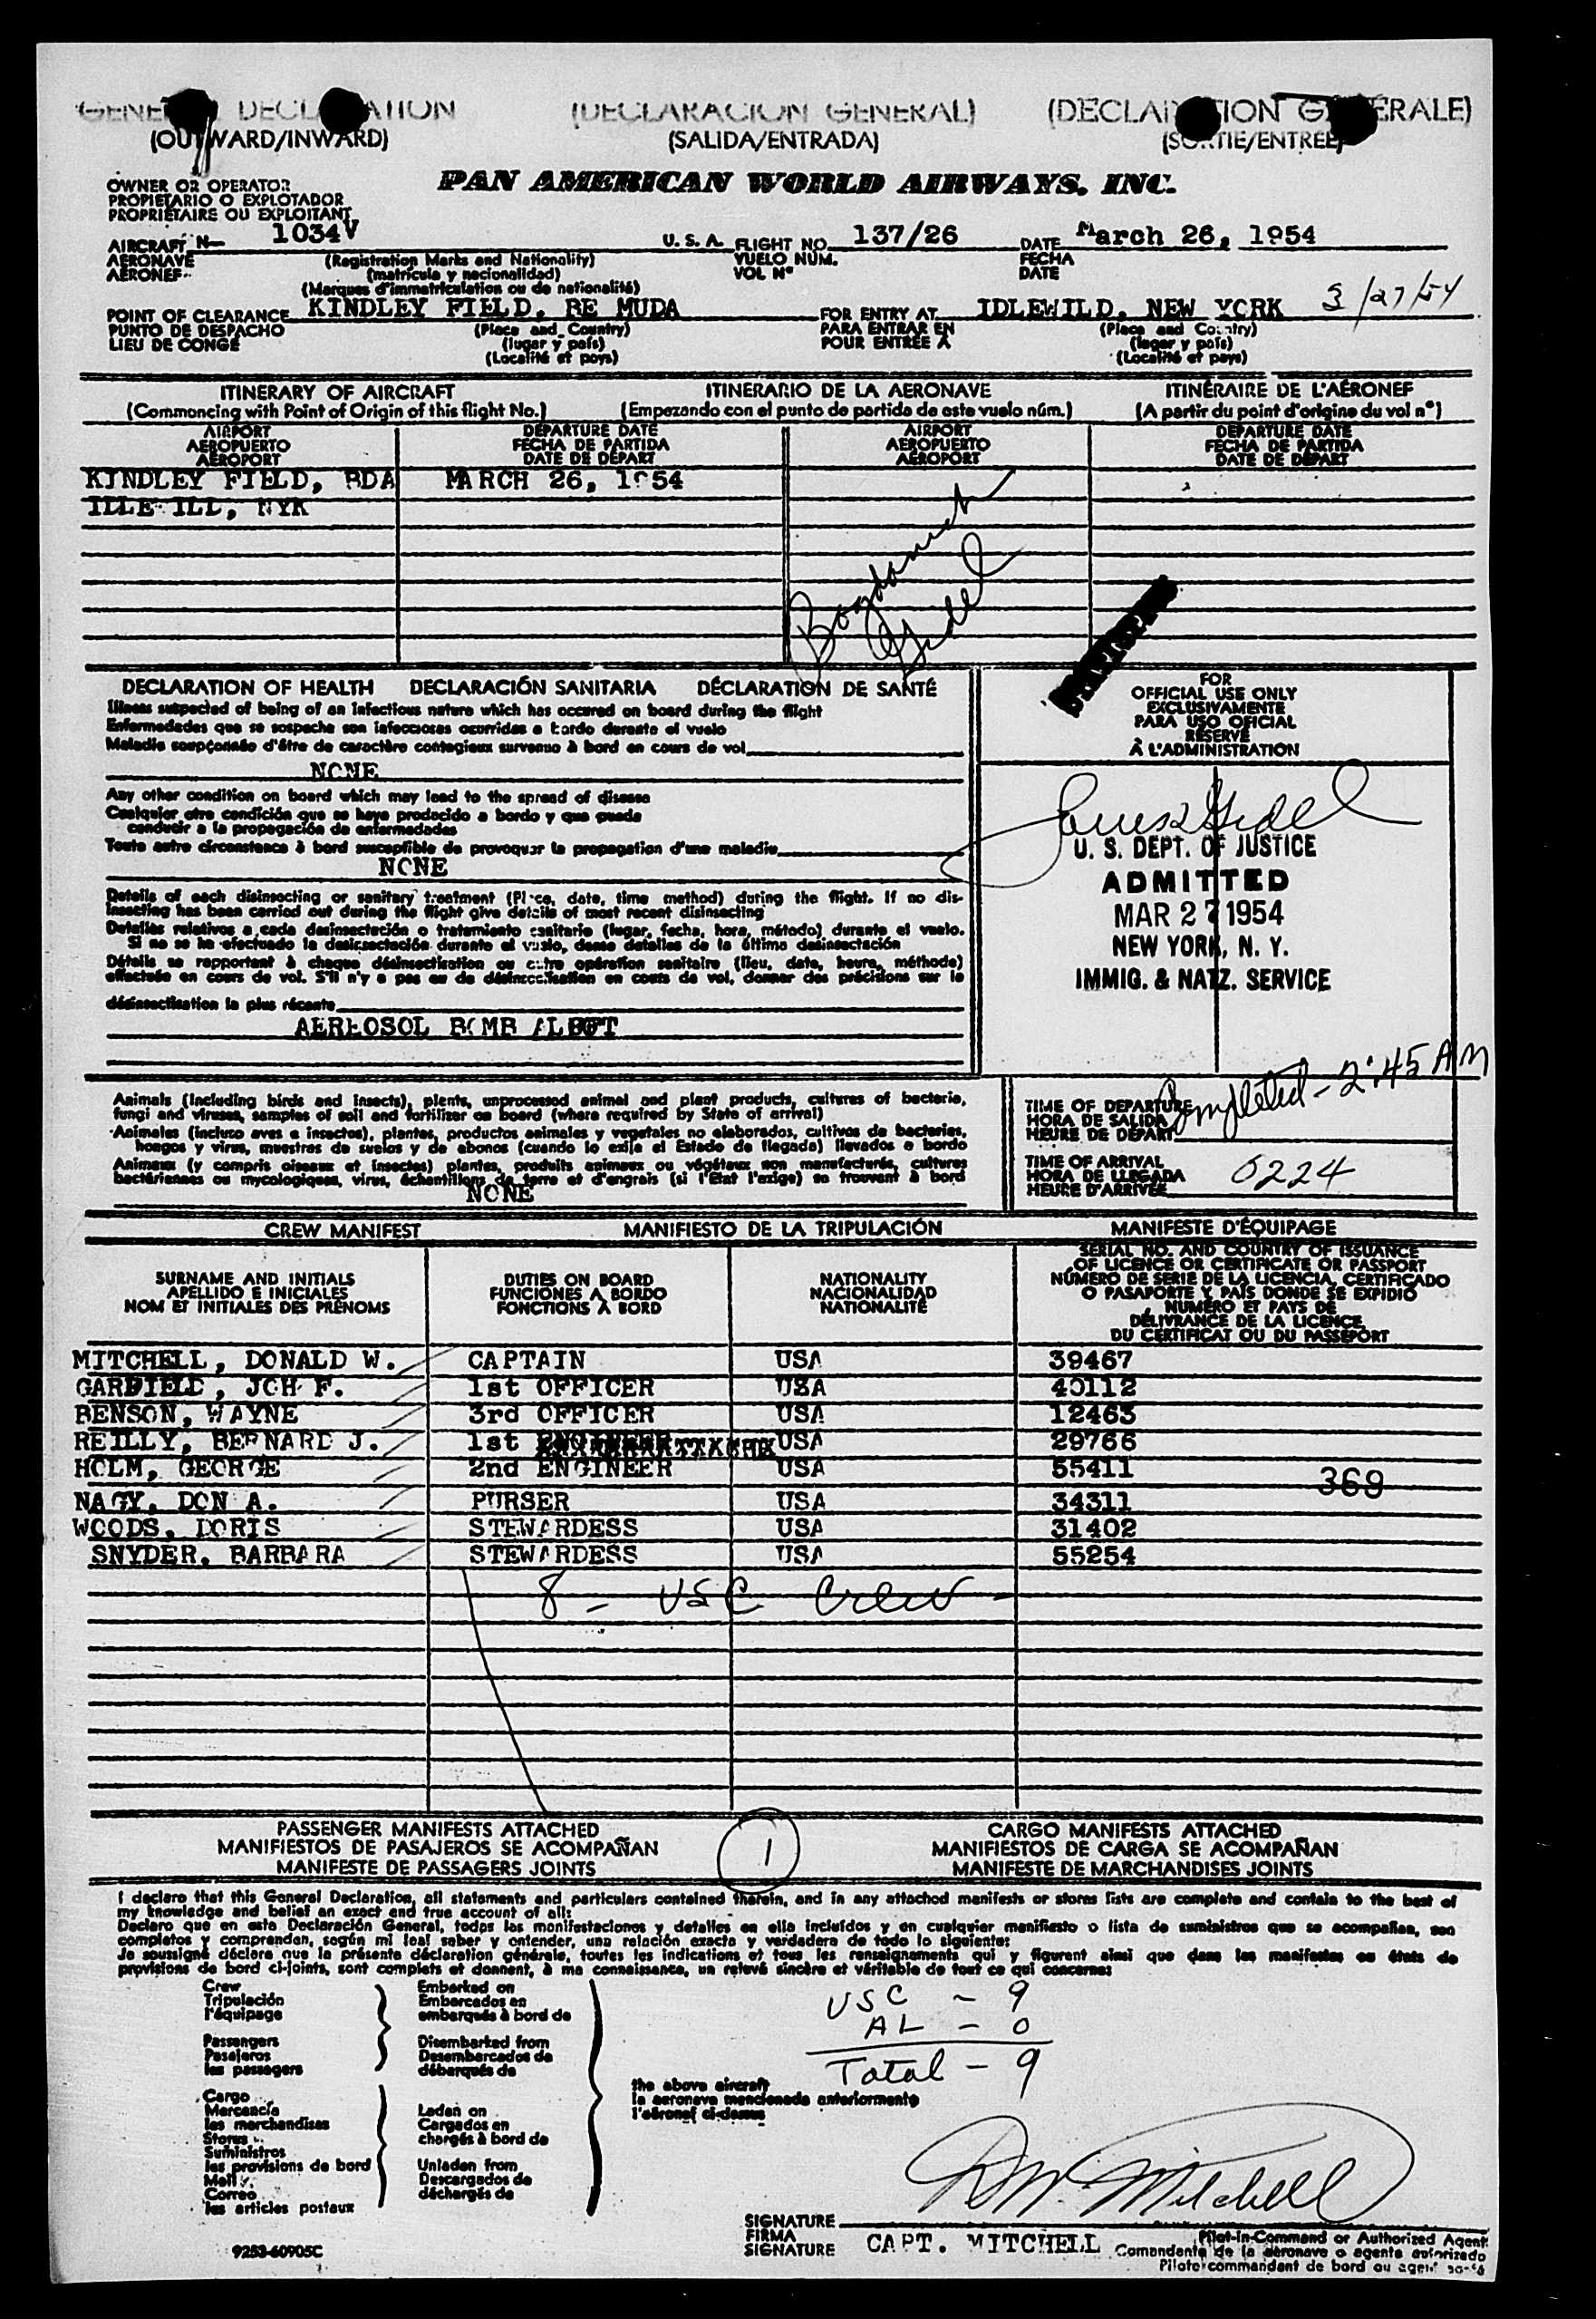 (DECLARACION GENERAL)
(SALIDA/ENTRADA)
PAN AMERICAN WORLD AIRWAYS, INC.
OWNER OR OPERATOR
PROPIETARIO O EXPLOTADOR
PROPRIÉTAIRE OU EXPLOITANT
AIRCRAFT N- 1034V U. S. A. FLIGHT NO. 137/26 DATE March 26, 1954
AERONAVE (Registration Marks and Nationality) VUELO NÚM. FECHA
AÉRONEF (matrícula y nacionalidad) VOL Nº DATE
(Marques d'immatriculation ou de nationalité)
3/27/54
POINT OF CLEARANCE KINDLEY FIELD, BE MUDA FOR ENTRY AT IDLEWILD, NEW YORK
PUNTO DE DESPACHO (Place and Country) PARA ENTRAR EN (Place and Country)
LIEU DE CONGÉ (lugar y país) POUR ENTRÉE À (lugar y país)
(Localité et pays) (Localité et pays)
ITINERARY OF AIRCRAFT ITINERARIO DE LA AERONAVE ITINÉRAIRE DE L'AÉRONEF
(Commencing with Point of Origin of this flight No.) (Empezando con el punto de partida de este vuelo núm.) (A partir du point d'origine du vol nº)
AIRPORT DEPARTURE DATE AIRPORT DEPARTURE DATE
AEROPUERTO FECHA DE PARTIDA AEROPUERTO FECHA DE PARTIDA
AÉROPORT DATE DE DÉPART AÉROPORT DATE DE DÉPART
KINDLEY FIELD, BDA MARCH 26, 1954
NYK
DECLARATION OF HEALTH DECLARACIÓN SANITARIA DÉCLARATION DE SANTÉ
Illness suspected of being of an infectious nature which has occured on board during the flight
Enfermedades que se sospeche son infecciosas ocurridas a bordo durante el vuelo
Maladie soupçonnée d'être de caractère contagieux survenue à bord en cours de vol
NONE
Any other condition on board which may lead to the spread of disease
Cualquier otra condición que se haya producido a bordo y que pueda
conducir a la propagación de enfermedades
Toute autre circonstance à bord susceptible de provoquer la propagation d'une maladie
NONE
Details of each disinsecting or sanitary treatment (Place, date, time method) during the flight. If no dis-
insecting has been carried out during the flight give details of most recent disinsecting
Detalles relativos a cada desinsectación o tratamiento sanitario (lugar, fecha, hora, método) durante el vuelo.
Si no se ha efectuado la desinsectación durante el vuelo, dense detalles de la última desinsectación
Détails se rapportant à chaque désinsectisation ou autre opération sanitaire (lieu, date, heure, méthode)
effectuée en cours de vol. S'il n'y a pas eu de désinsectisation en cours de vol, donner des précisions sur la
désinsectisation la plus récente
AEREOSOL BOMB ALOFT
FOR
OFFICIAL USE ONLY
EXCLUSIVAMENTE
PARA USO OFICIAL
RÉSERVÉ
À L'ADMINISTRATION
U. S. DEPT. OF JUSTICE
ADMITTED
MAR 27 1954
NEW YORK, N. Y.
IMMIG. & NATZ. SERVICE
Animals (including birds and insects), plants, unprocessed animal and plant products, cultures of bacteria,
fungi and viruses, samples of soil and fertilizer on board (where required by State of arrival)
Animales (incluso aves e insectos), plantas, productos animales y vegetales no elaborados, cultivos de bacterias,
hongos y virus, muestras de suelos y de abonos (cuando lo exija el Estado de llegada) llevados a bordo
Animaux (y compris oiseaux et insectes) plantes, produits animaux ou végétaux non manufacturés, cultures
bactériennes ou mycologiques, virus, échantillons de terre et d'engrais (si l'État l'exige) se trouvant à bord
NONE
Completed - 2:45 AM
TIME OF DEPARTURE
HORA DE SALIDA
HEURE DE DÉPART
TIME OF ARRIVAL 0224
HORA DE LLEGADA
HEURE D'ARRIVÉE
CREW MANIFEST MANIFIESTO DE LA TRIPULACIÓN MANIFESTE D'ÉQUIPAGE
SURNAME AND INITIALS DUTIES ON BOARD NATIONALITY
APELLIDO E INICIALES FUNCIONES A BORDO NACIONALIDAD
NOM ET INITIALES DES PRÉNOMS FONCTIONS À BORD NATIONALITÉ
SERIAL NO. AND COUNTRY OF ISSUANCE
OF LICENCE OR CERTIFICATE OR PASSPORT
NÚMERO DE SERIE DE LA LICENCIA, CERTIFICADO
O PASAPORTE Y PAÍS DONDE SE EXPIDIÓ
NUMÉRO ET PAYS DE
DÉLIVRANCE DE LA LICENCE,
DU CERTIFICAT OU DU PASSEPORT
MITCHELL, DONALD W. CAPTAIN USA 39467
GARFIELD, JOH F. 1st OFFICER USA 40112
BENSON, WAYNE 3rd OFFICER USA 12463
REILLY, BERNARD J. 1st USA 29766
HOLM, GEORGE 2nd ENGINEER USA 55411
369
NAGY, DON A. PURSER USA 34311
WOODS, DORIS STEWARDESS USA 31402
SNYDER, BARBARA STEWARDESS USA 55254
8 - USC Crew -
PASSENGER MANIFESTS ATTACHED 1 CARGO MANIFESTS ATTACHED
MANIFIESTOS DE PASAJEROS SE ACOMPAÑAN MANIFIESTOS DE CARGA SE ACOMPAÑAN
MANIFESTE DE PASSAGERS JOINTS MANIFESTE DE MARCHANDISES JOINTS
I declare that this General Declaration, all statements and particulars contained therein, and in any attached manifests or stores lists are complete and contain to the best of
my knowledge and belief an exact and true account of all:
Declaro que en esta Declaración General, todas las manifestaciones y detalles en ella incluídos y en cualquier manifiesto o lista de suministros que se acompañan, son
completos y comprenden, según mi leal saber y entender, una relación exacta y verdadera de todo lo siguiente:
Je soussigné déclare que la présente déclaration générale, toutes les indications et tous les renseignaments qui y figurent ainsi que dans les manifestes ou états de
provisions de bord ci-joints, sont complets et donnent, à ma connaissance, un relevé sincère et véritable de tout ce qui concerne:
Crew Embarked on
Tripulación Embarcados en
l'équipage embarqués à bord de
Passengers Disembarked from
Pasajeros Desembarcados de
les passagers débarqués de
USC - 9
AL - 0
Total - 9
the above aircraft
la aeronave mencionada anteriormente
l'aéronef ci-dessus
Cargo
Mercancía Laden on
les marchandises Cargados en
Stores chargés à bord de
Suministros
les provisions de bord Unladen from
Mail Descargados de
Correo déchargés de
les articles postaux
D.W. Mitchell
SIGNATURE
FIRMA CAPT. MITCHELL Pilot-in-Command or Authorized Agent
SIGNATURE Comandante de la aeronave o agente autorizado
9253-60905C Pilote commandant de bord ou agent